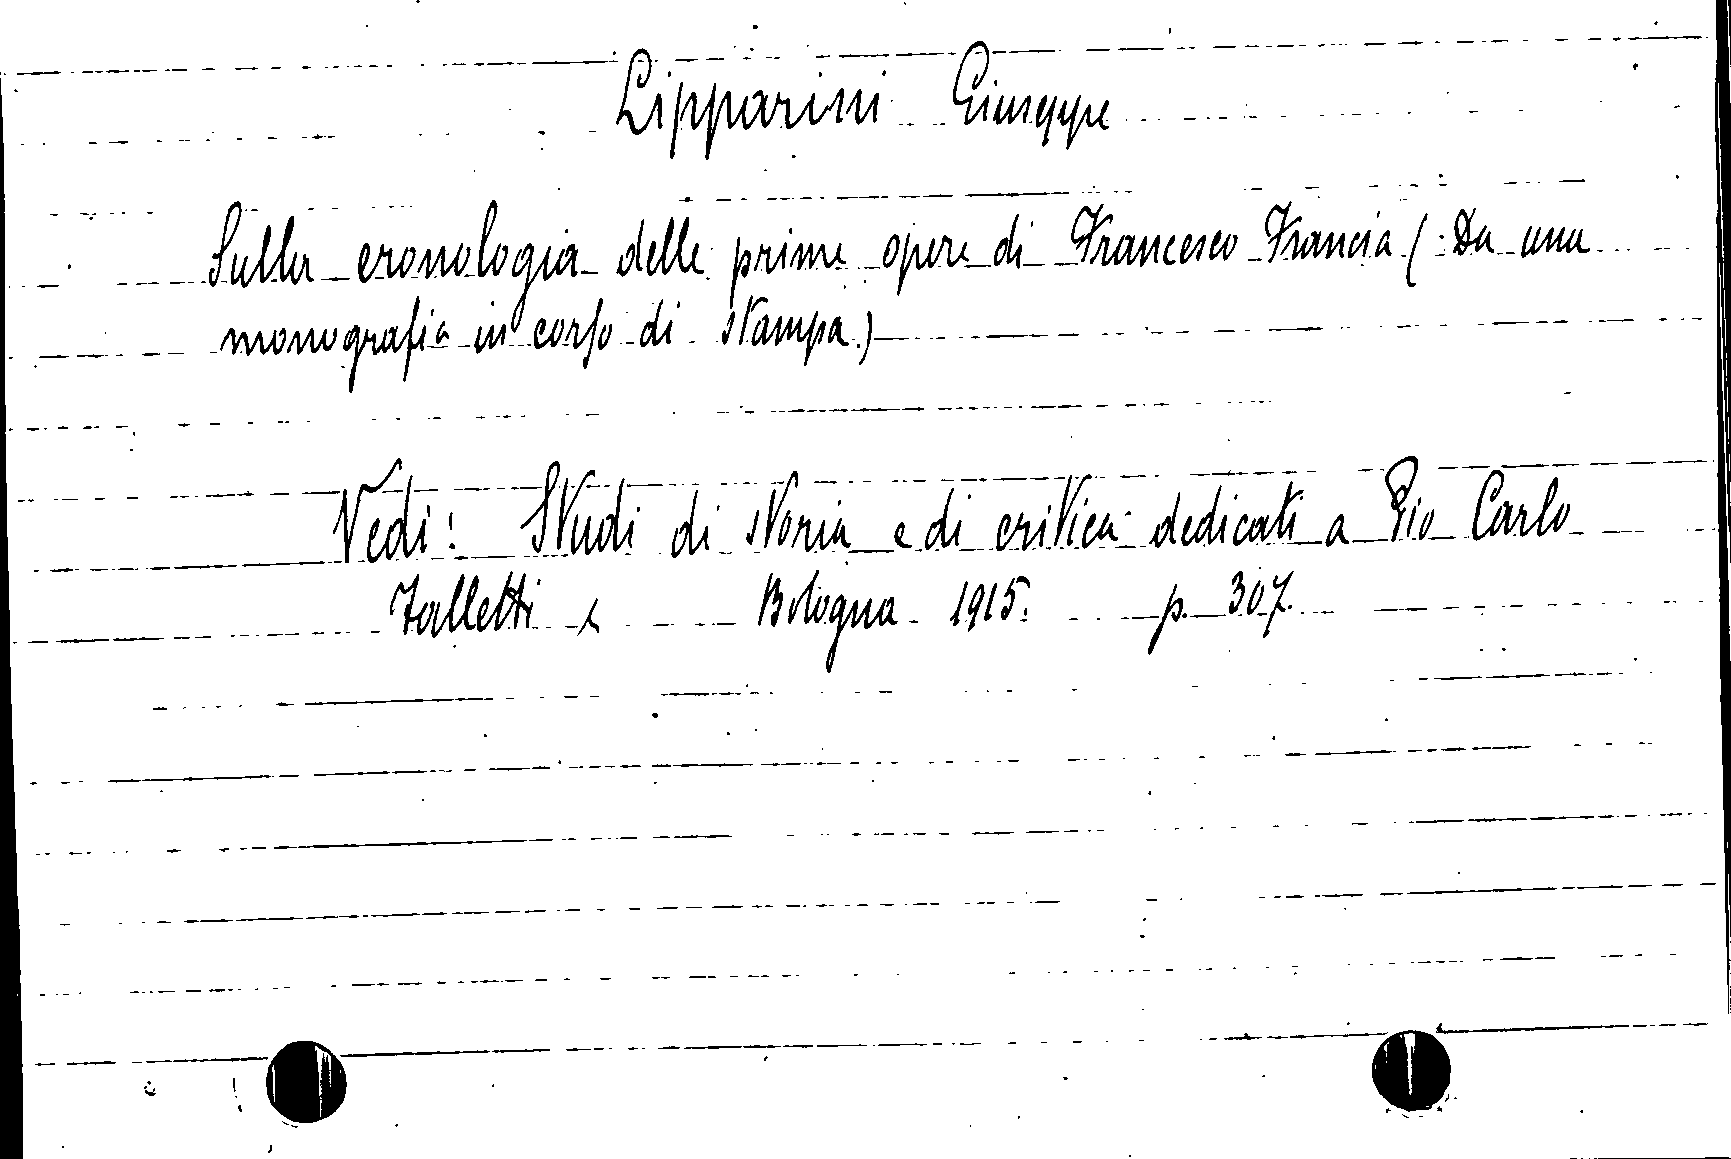 Lipparini Giuseppe
Sulla cronologia delle prime opere di Francesco Francia (Da una
monografia in corso di stampa.)
Vedi: Studi di storia e di critica dedicati a Pio Carlo
Falletti Bologna 1915. p. 307.